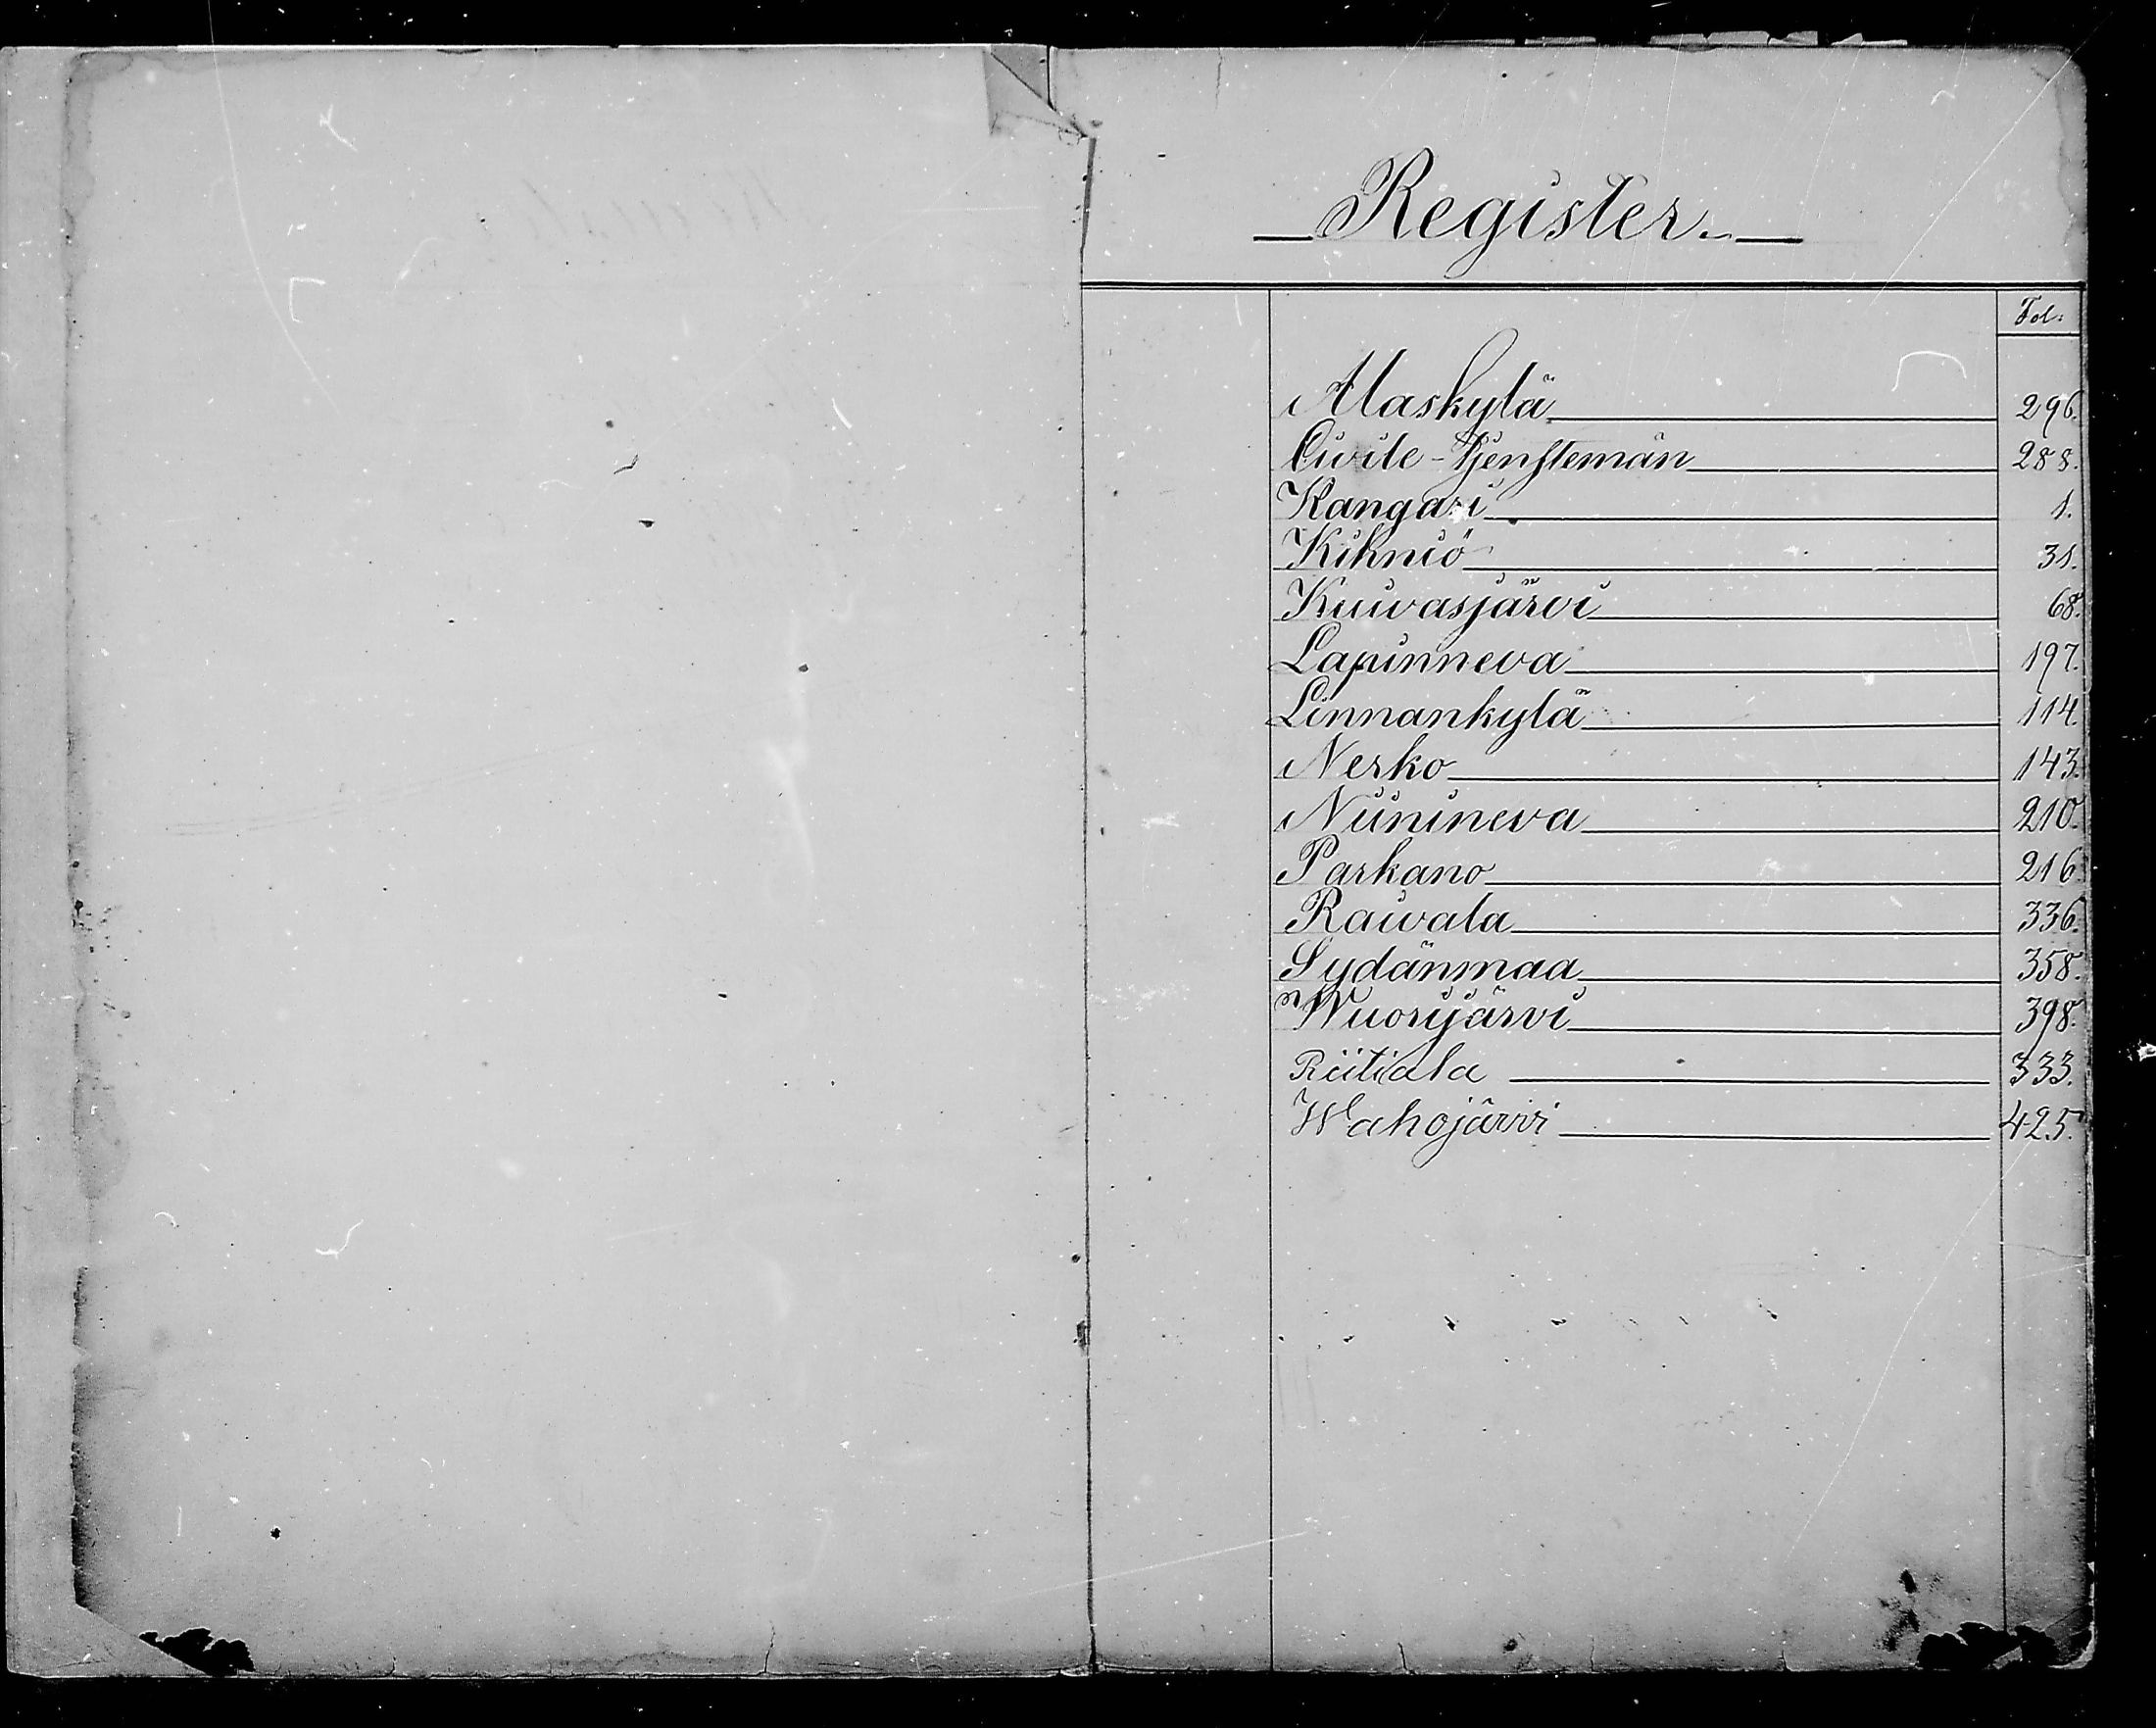 Register.
Fol:
Alaskylä 296.
Civile-Tjenstemän 288.
Kangari 1.
Kihniö 31.
Kuivasjärvi 68.
Lapinneva 197.
Linnankylä 114
Nerko 143.
Niinineva 210.
Parkano 216
Raivala 336.
Sydänmaa 358.
Wuorijärvi 398.
Riitiala 333.
Wahojärvi 425.